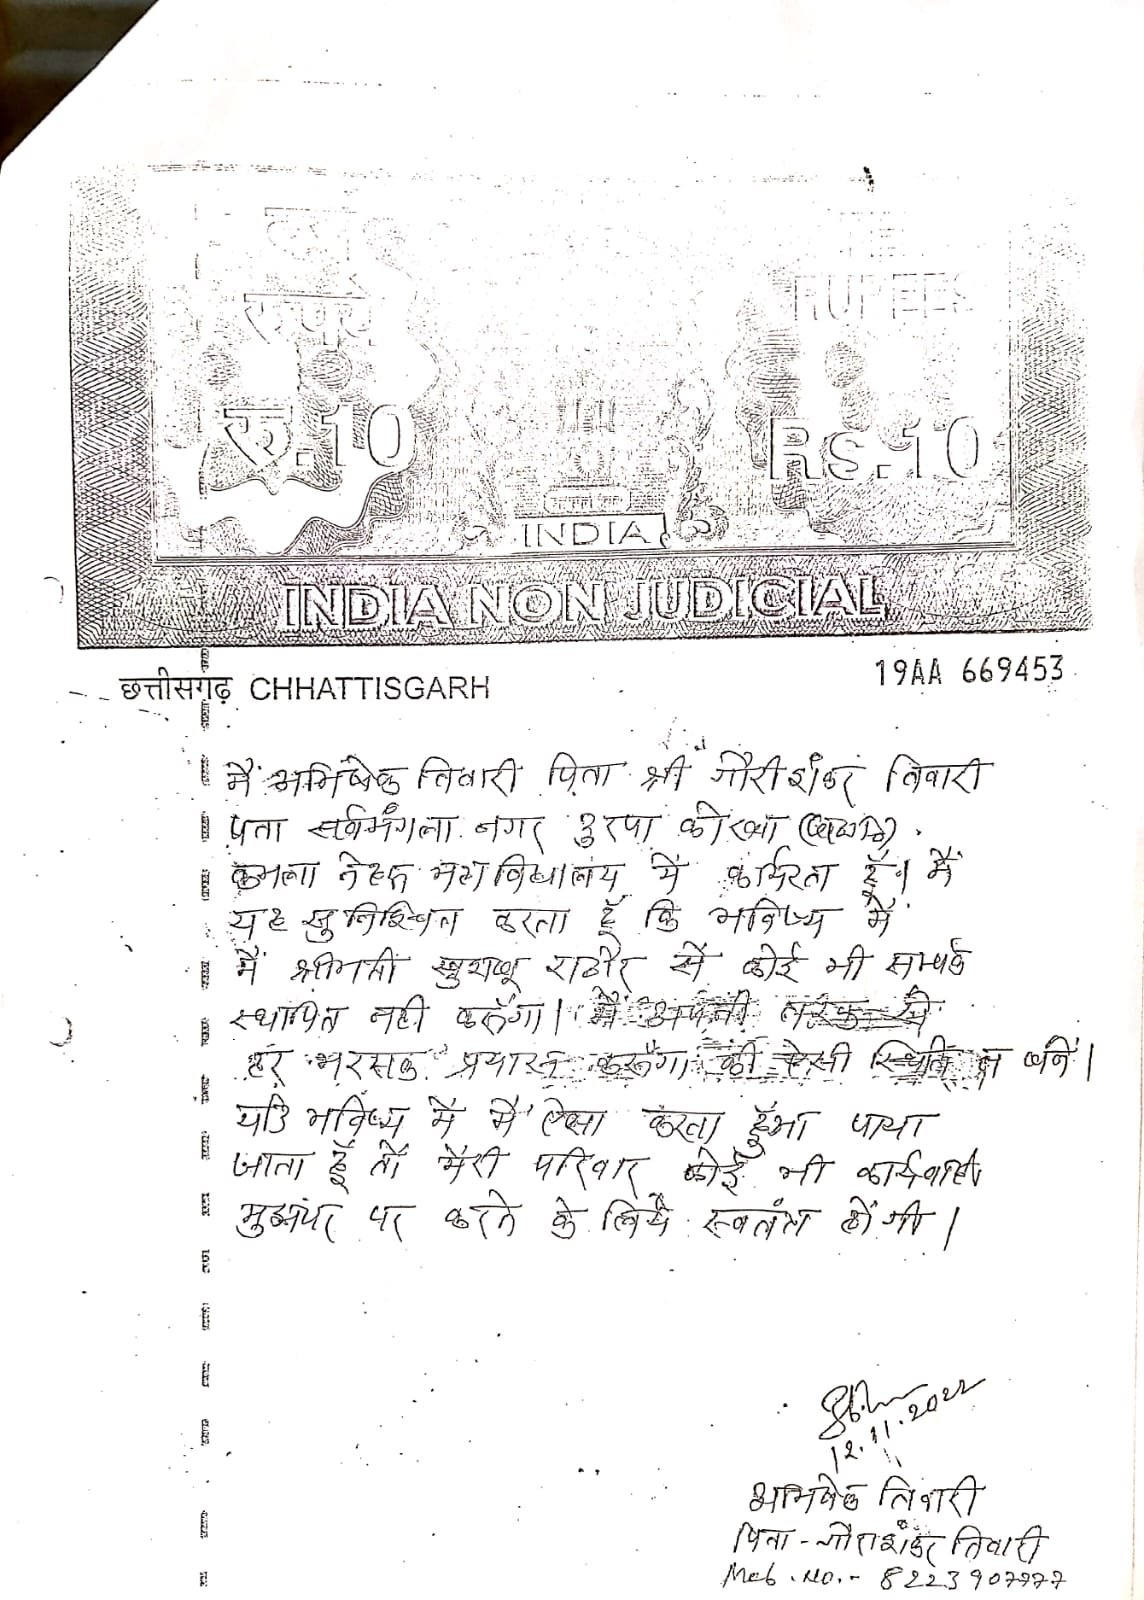 रुपये
RUPEES
रु.10
Rs.10
INDIA
INDIA NON JUDICIAL
छत्तीसगढ़ CHHATTISGARH
19AA 669453
मैं अभिषेक तिवारी पिता श्री गौरीशंकर तिवारी
पता सर्वमंगला नगर दुरपा कोरबा
कमला नेहरू महाविद्यालय में कार्यरत हूँ। मैं
यह सुनिश्चित करता हूँ कि भविष्य में
मैं श्रीमती खुशबू राठौर से कोई भी सम्पर्क
स्थापित नही करूँगा। मैं अपनी तरफ से
हर भरसक प्रयास करूँगा की ऐसी स्थिति न बने।
यदि भविष्य में मैं ऐसा करता हुआ पाया
जाता हूँ तो मेरी परिवार कोई भी कार्यवाही
मुझपर पर करने के लिये स्वतंत्र होंगी।
12.11.2022
अभिषेक तिवारी
पिता - गौरीशंकर तिवारी
Mob. No. - 8223907977